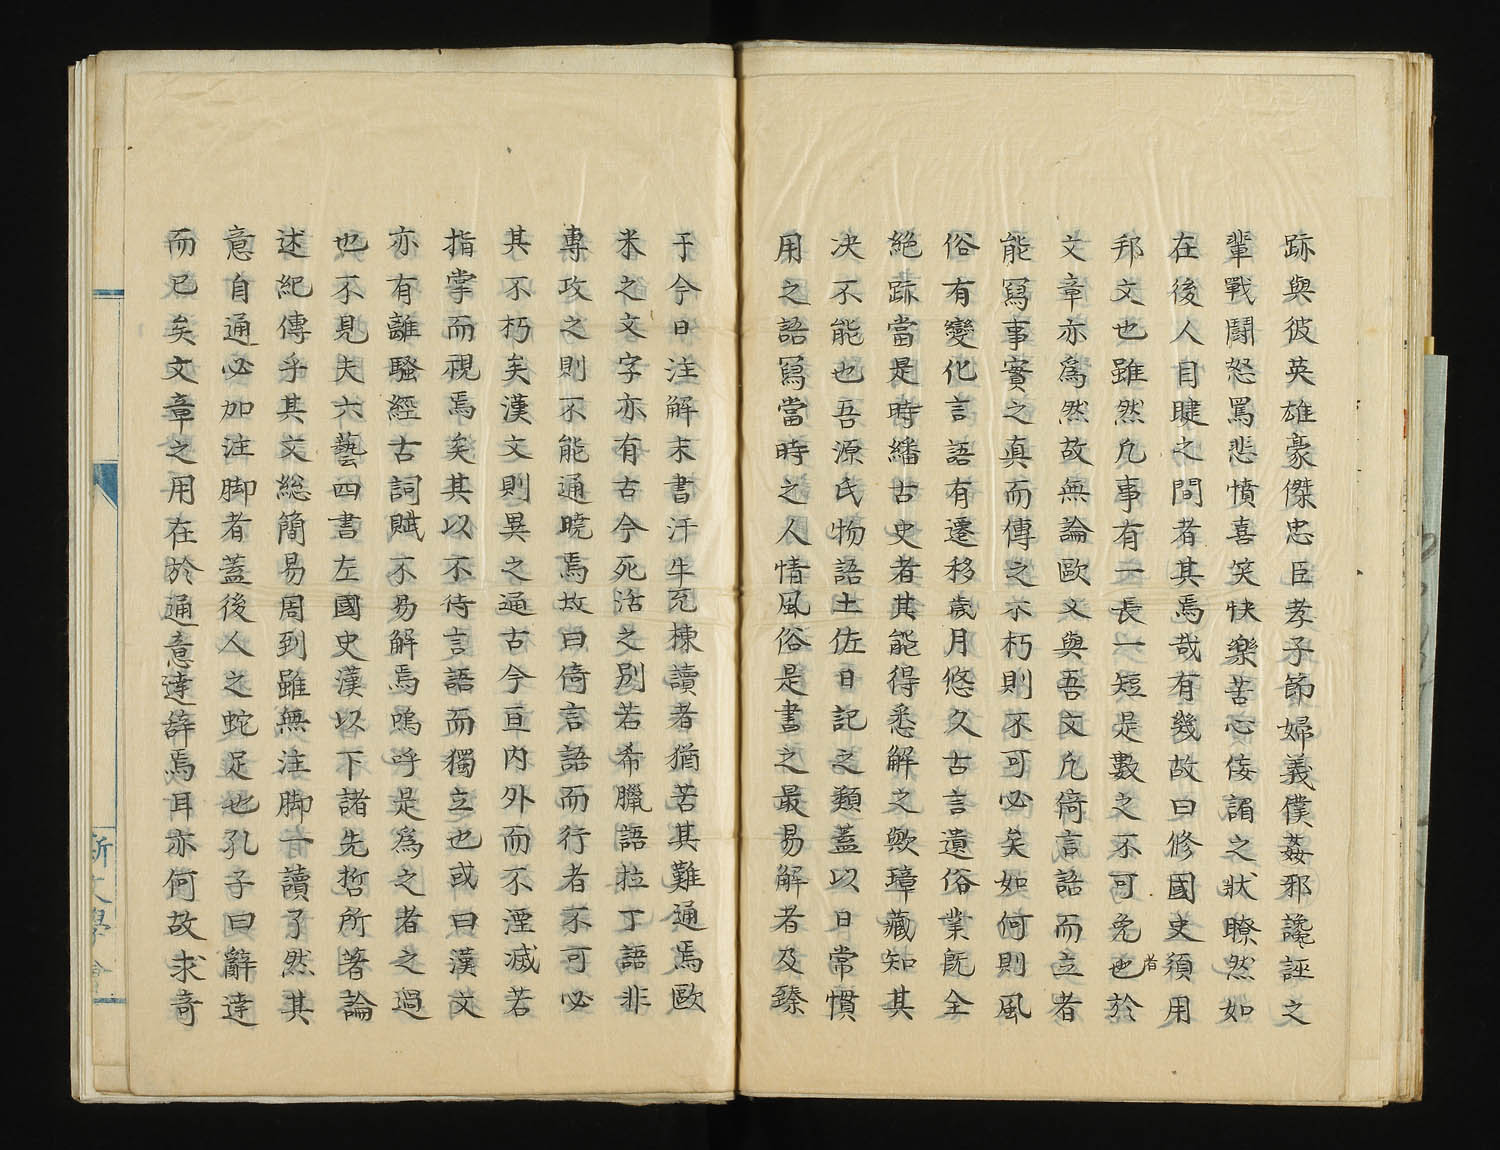 跡與彼英雄豪傑忠臣孝子節婦義僕姦邪讒誣之
輩戰鬪怒罵悲憤喜笑快樂苦心佞諂之狀瞭然如
在後人目睫之間者其焉哉有幾故曰修國史須用
邦文也雖然凡事有一長一短是數之不可免也於
者
文章亦為然故無論歐文與吾文凡倚言語而立者
能寫事實之真而傳之不朽則不可必矣如何則風
俗有變化言語有遷移歲月悠久古言遺俗業既全
絕跡當是時繙古史者其能得悉解之歟璋藏知其
决不能也吾源氏物語土佐日記之類蓋以日常慣
用之語寫當時之人情風俗是書之最易解者及臻
于今日注解末書汗牛充棟讀者猶苦其難通焉歐
米之文字亦有古今死活之別若希臘語拉丁語非
專攻之則不能通曉焉故曰倚言語而行者不可必
其不朽矣漢文則異之通古今亘內外而不湮滅若
指掌而視焉矣其以不待言語而獨立也或曰漢文
亦有離騷經古詞賦不易解焉嗚呼是為之者之過
也不見夫六藝四書左國史漢以下諸先哲所著論
述紀傳乎其文総簡易周到雖無注脚一讀了然其
意自通必加注脚者蓋後人之蛇足也孔子曰辭達
而已矣文章之用在於通意達辞焉耳亦何故求奇
新文學會